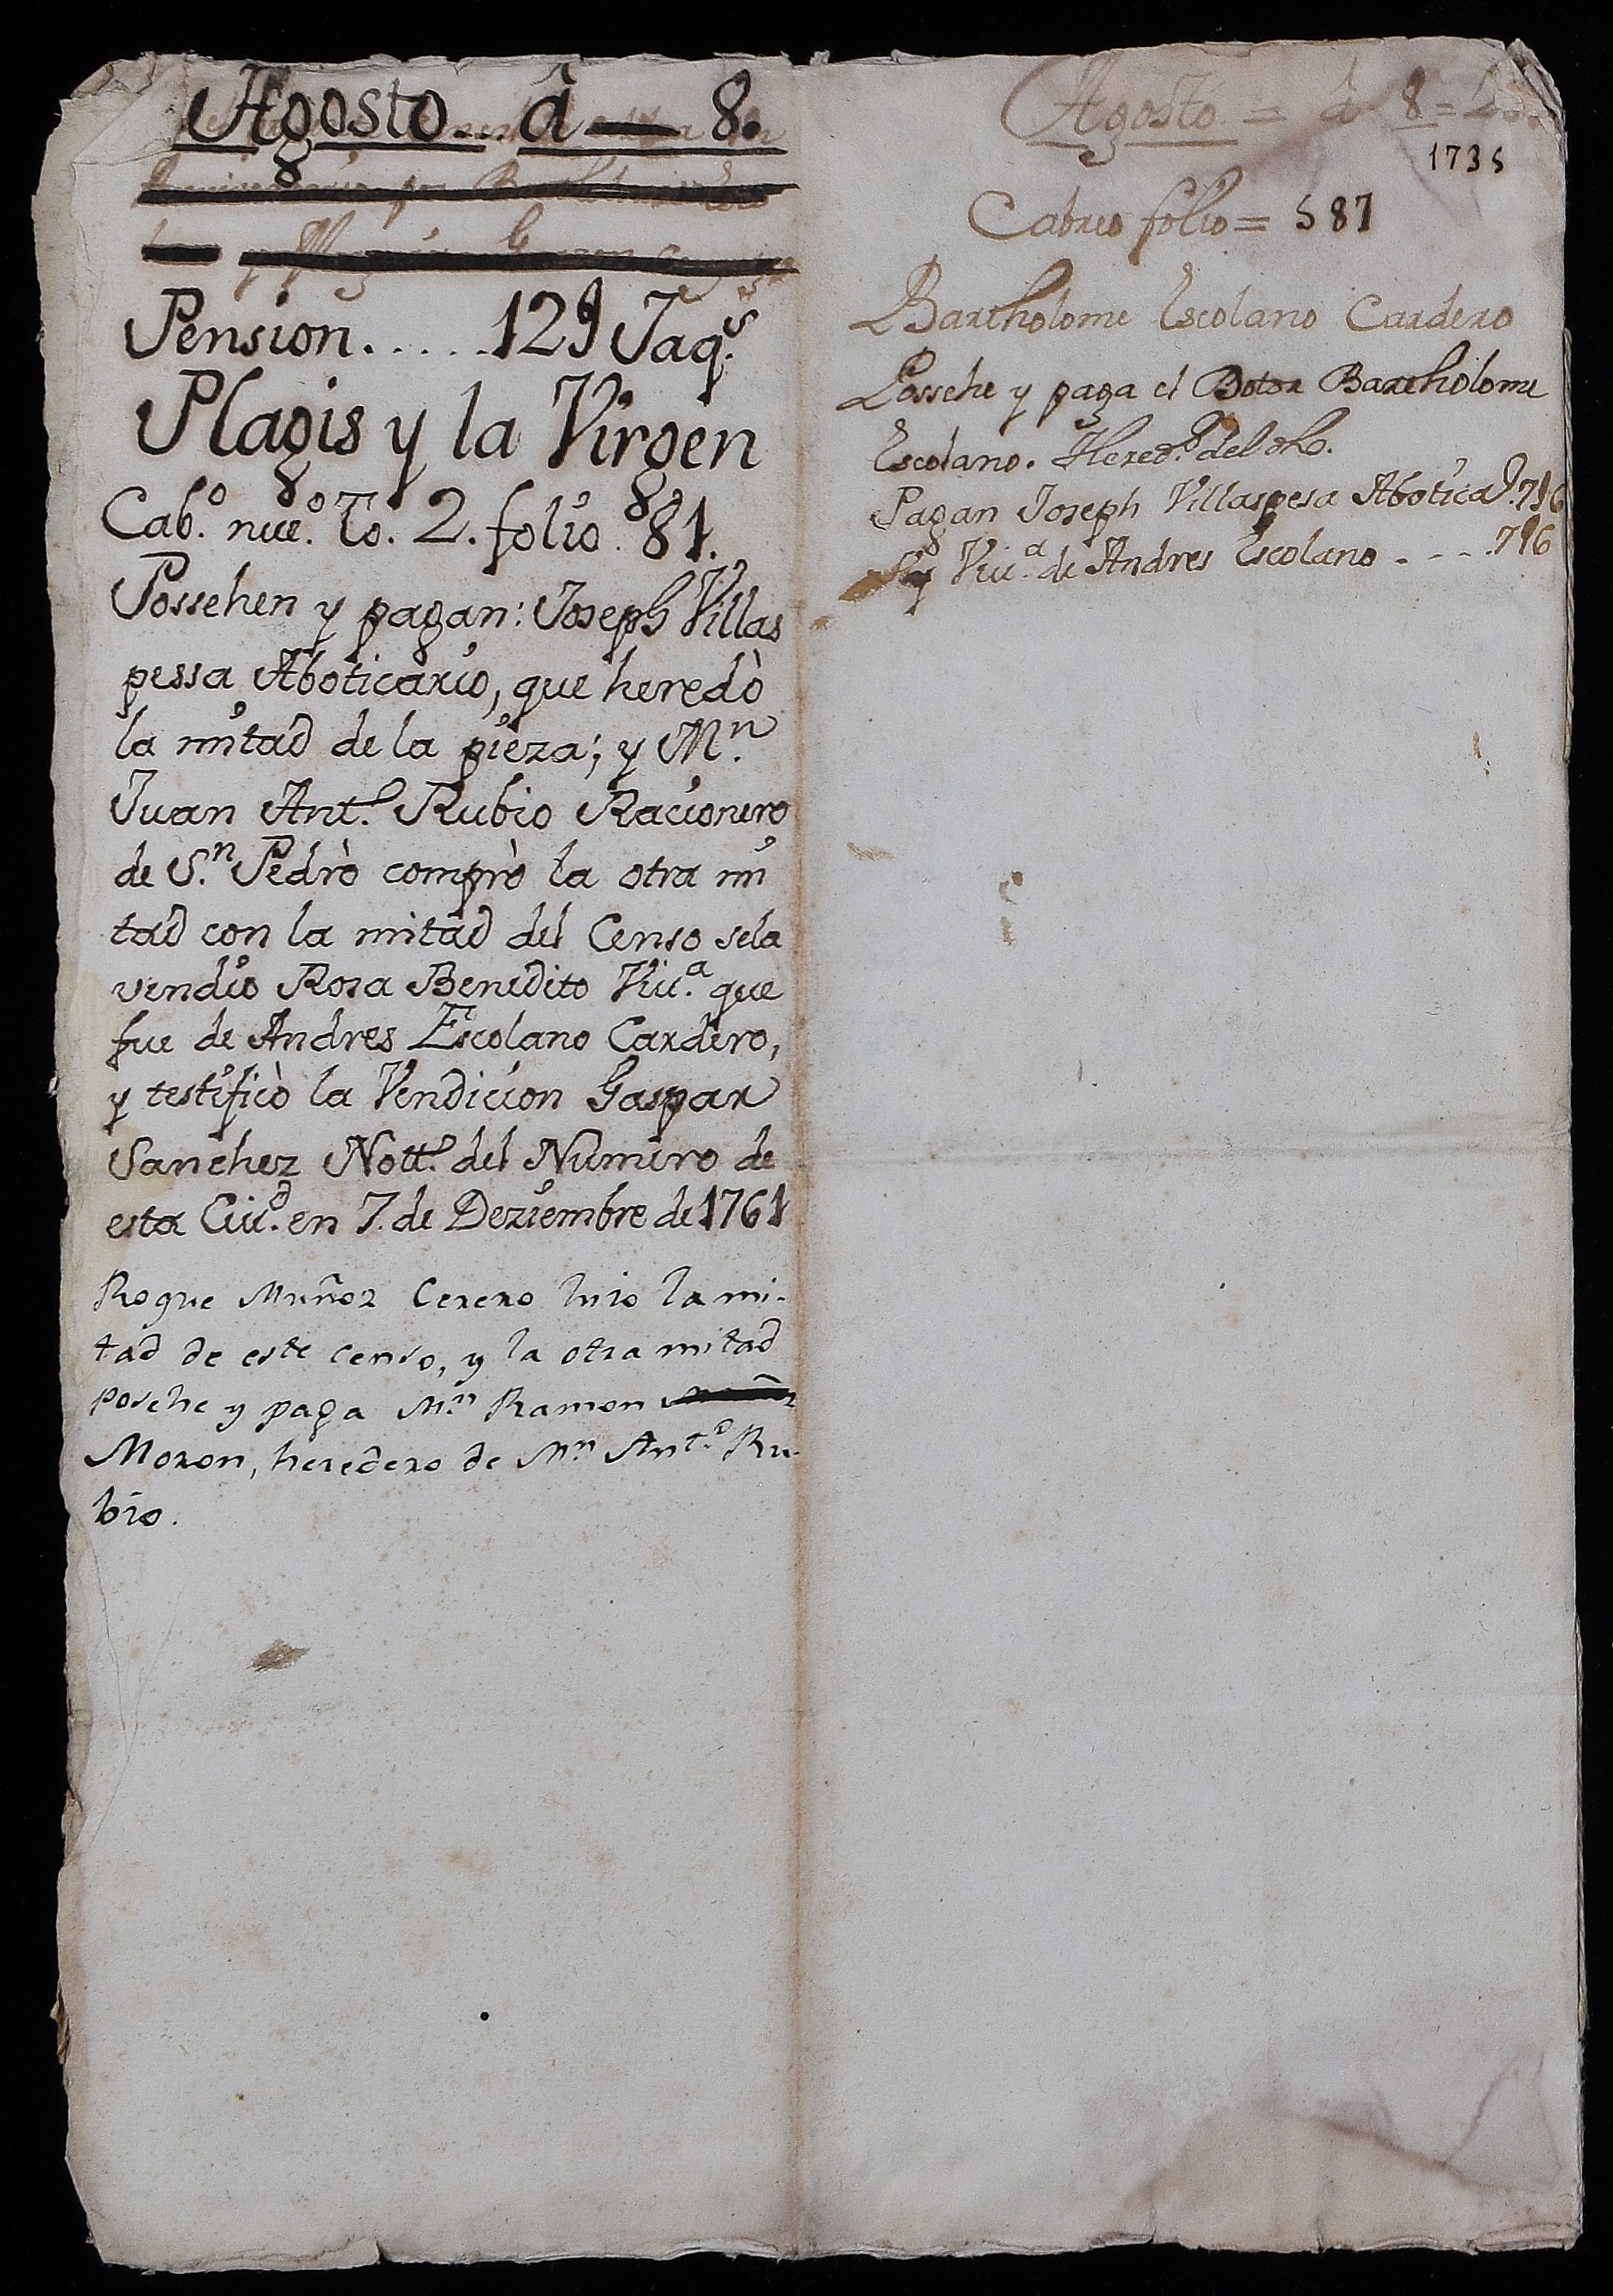 Agosto... â — 8.
Pension......12 ſ Jaq.s
Plagis y la Virgen
Cab.o nue.o To. 2. folio. 81.
Possehen y pagan: Joseph Villas
pessa Aboticario, que heredò
la mitad de la pieza; y M.n
Juan Ant.o Rubio Racionero
de S.n Pedrò comprò la otra mi
tad con la mitad del Censo sela
vendio Rosa Benedito Viu.a que
fue de Andres Escolano Cardero,
y testificò la Vendicion Gaspar
Sanchez Nott.o del Numero de
esta Ciu.d en 7. de Deziembre de 1761
Roque Muñoz Cerero luio la mi-
tad de este censo, y la otra mitad
posehe y paga M.n Ramon
Moron, heredero de M.n Ant.o Ru-
bio.
Agosto = â 8 =
1735
Cabreo folio = 587
Bartholome Escolano Cardero
Possehe y paga el Dotor Bartholome
Escolano. Hered.o del dho.
Pagan Joseph Villaspesa Abotica.o 7 ſ 6
y Viu.a de Andres Escolano - - - . 7 ſ 6